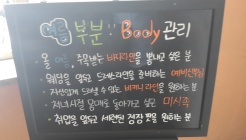 여름 부분 : Body 관리
올 여름 주목받는 바디라인을 뽐내고 싶은 분
웨딩을 앞두고 S라인을 준비하는 예비신부님
자신있게 입을 수 있는 비키니 라인을 원하는 분
저녁시절 몸매로 돌아가고 싶은 미시족
취업을 앞두고 세련된 정장 핏을 원하는 분